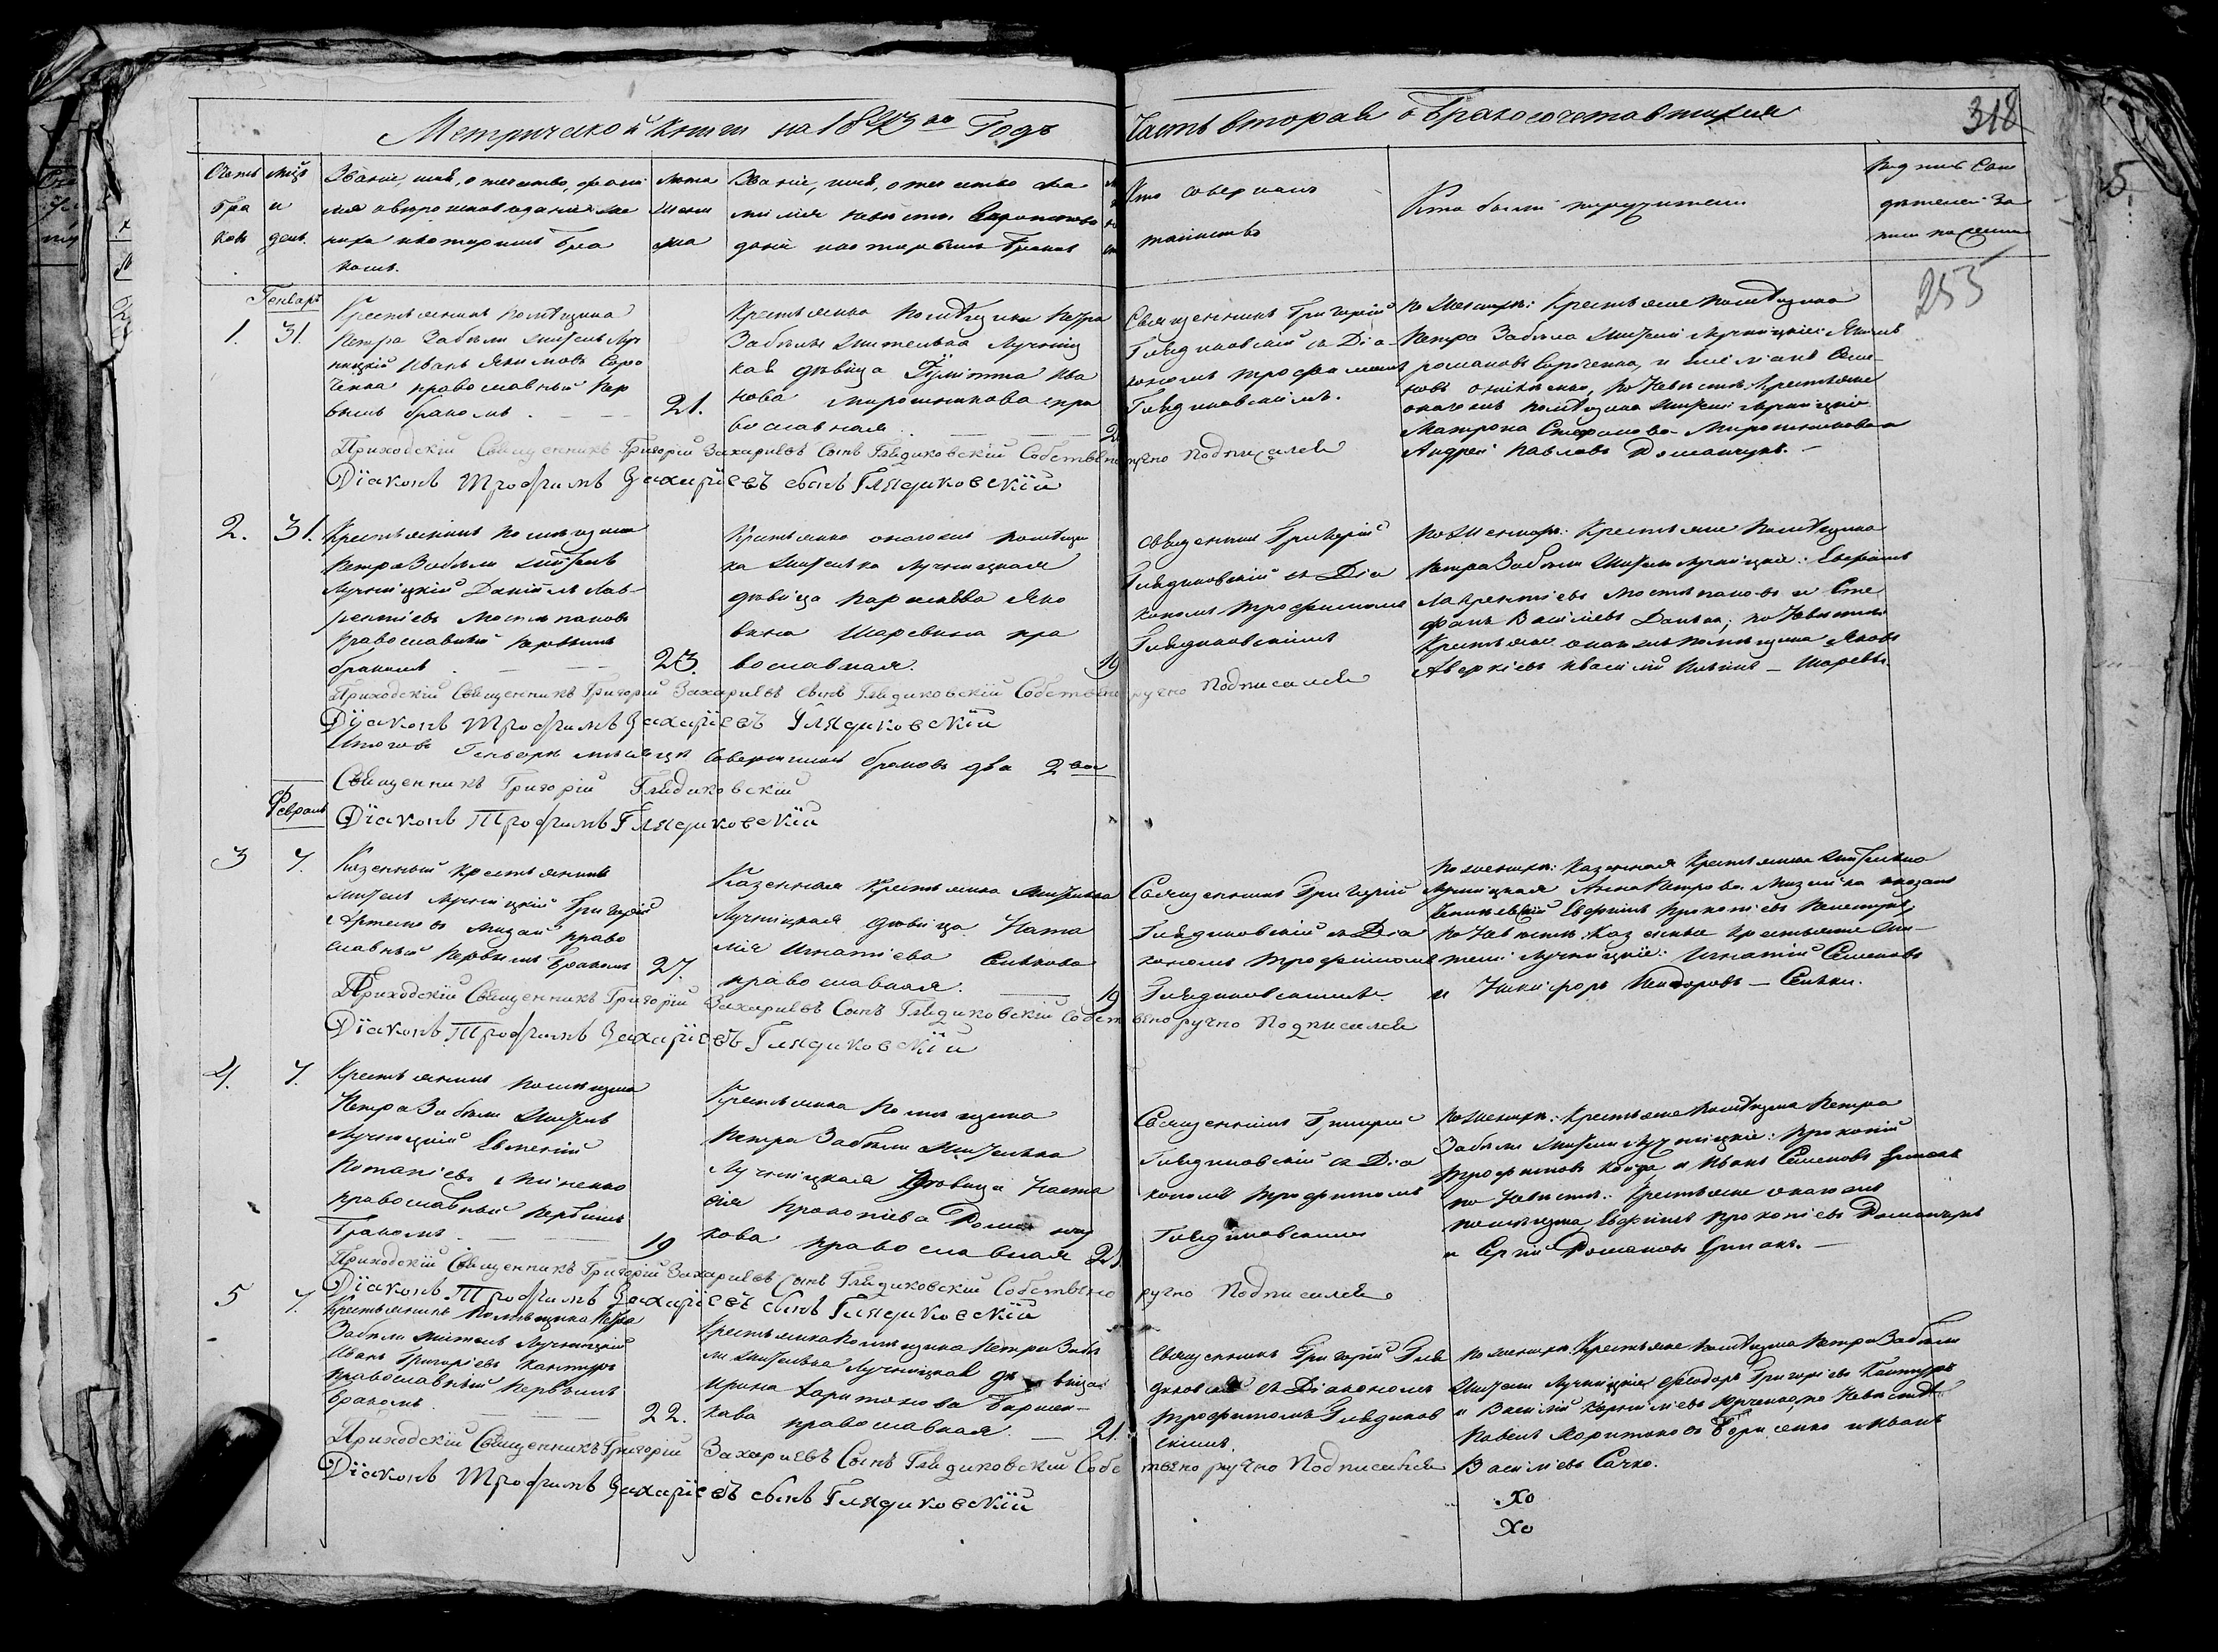 Метрической книги на 1843 го Годъ
Часть вторая о бракосочетавшихся
318
Счетъ бра ковъ
мцъ и день.
Званіе, имя, отечество, фами
лія и вероисповеданіе же
ниха и которымъ бра
комъ.
Лета жени ха
Званіе, имя, отечество фа
милія невесты вероиспове
даніе и которымъ бракомъ
Кто совершалъ
таинство
Кто были поручители
255
Генварь
1.
31.
Крестьянинъ помѣщика
Петра Забѣлы житель Луч
ницкій Иванъ Якимовъ Соро
ченко православный пер
вымъ бракомъ.
21.
Крестьянка помѣщика Петра
Забѣлы жителька Лучниц
кая дѣвица Ива
нова Мирошникова пра
вославная.
Священникъ Григорій
Глядиковскій съ Діа
кономъ Трофимомъ
Глядиковскимъ.
по женихѣ: Крестьяне помѣщика
Петра Забѣла жители Лучницкіе: Якимъ
Романовъ Сороченко, и Емеліанъ Семе-
новъ по невестѣ: Крестьяне
онагожъ помѣщика жители Лучницкіе
Матрона Стефанова Мирошникова и
Андрей Павловъ Доманчукъ.
Приходскій Священникъ Григорій Захаріевъ Сынъ Глядиковскій Собственоручно Подписался
Діаконъ Трофимъ Захаріевъ сынъ Глядиковскій
2.
31.
Крестьянинъ помѣщика
Петра Забѣлы житель
Лучницкій Даніилъ Лав-
рентіевъ Мостипановъ
православный первымъ
бракомъ
23.
Крестьянка онагожъ помѣщи
ка жителька Лучницкая
дѣвица Параскева Яко
влева Шаревина пра
вославная.
19
Священникъ Григорій
Глядиковскій съ Діа
кономъ Трофимомъ
Глядиковскимъ
по женихѣ: Крестьяне помѣщика
Петра Забѣлы жители Лучницкіе: Евфимъ
Лаврентіевъ Мостипановъ и Сте
фанъ Василіевъ по невестѣ
Крестьяне онагожъ помѣщика Яковъ
Аверкіевъ и Василій Шаревы.
Приходскій Священникъ Григорій Захаріевъ Сынъ Глядиковскій Собственоручно Подписался
Діаконъ Трофимъ Захаріевъ Глядиковскій
Итого въ Генварѣ мѣсяцѣ совершилось браковъ два 2 ва
Священникъ Григорій Глядиковскій
Діаконъ Трофимъ Глядиковскій
Февраль
3
7.
Казенный крестьянинъ
житель Лучницкій Григорій
Артемовъ Мизай право
славный первымъ бракомъ
27.
Казенная крестьянка жителька
Лучницкая дѣвица Ната
лія Игнатіева Сенкова
православная.
19
Священникъ Григорій
Глядиковскій съ Діа
кономъ Трофимомъ
Глядиковскимъ
по женихѣ: Казенная крестьянка жителька
Лучницкая Анна Петрова Мизайка
Евфимъ Прокопіевъ
по невестѣ: Казенные крестьяне жи-
тели Лучницкіе: Игнатій Семеновъ
и Никифоръ Сидоровъ — Сенки.
Приходскій Священникъ Григорій Захаріевъ Сынъ Глядиковскій Собственоручно Подписался
Діаконъ Трофимъ Захаріевъ Глядиковскій
4.
7.
Крестьянинъ помѣщика
Петра Забѣлы житель
Лучницкій Евменій
Потапіевъ Миненко
православный первымъ
бракомъ.
19
Крестьянка помѣщика
Петра Забѣлы жителька
Лучницкая дѣвица Наста
сія Прокопіева Доман
кова православная
21
Священникъ Григорій
Глядиковскій съ Діа
кономъ Трофимомъ
Глядиковскимъ
по женихѣ: Крестьяне помѣщика Петра
Забѣлы жители Лучницкіе: Прокопій
Трофимовъ и Иванъ Семеновъ
по невестѣ: Крестьяне онагожъ
помѣщика Евфимъ Прокопіевъ Доманчукъ
и Сергій Романовъ
Приходскій Священникъ Григорій Захаріевъ Сынъ Глядиковскій Собственоручно Подписался
Діаконъ Трофимъ Захаріевъ сынъ Глядиковскій
5
7.
Крестьянинъ помѣщика Петра
Забѣлы житель Лучницкій
Иванъ Григоріевъ Кантуръ
православный первымъ
бракомъ.
22.
Крестьянка помѣщика Петра Забѣ
лы жителька Лучницкая дѣвица
Ирина Харитонова Борисен-
кова православная. —
21.
Священникъ Григорій Гля
диковскій съ Діакономъ
Трофимомъ Глядиков
скимъ.
по женихѣ: Крестьяне помѣщика Петра Забѣлы
жители Лучницкіе Феодоръ Григоріевъ Кантуръ
и Василій Корниліевъ по невестѣ
Павелъ Харитоновъ Борисенко и Иванъ
Василіевъ Сачко.
Приходскій Священникъ Григорій Захаріевъ Сынъ Глядиковскій Собственоручно Подписался
Діаконъ Трофимъ Захаріевъ сынъ Глядиковскій
Хо
Хо